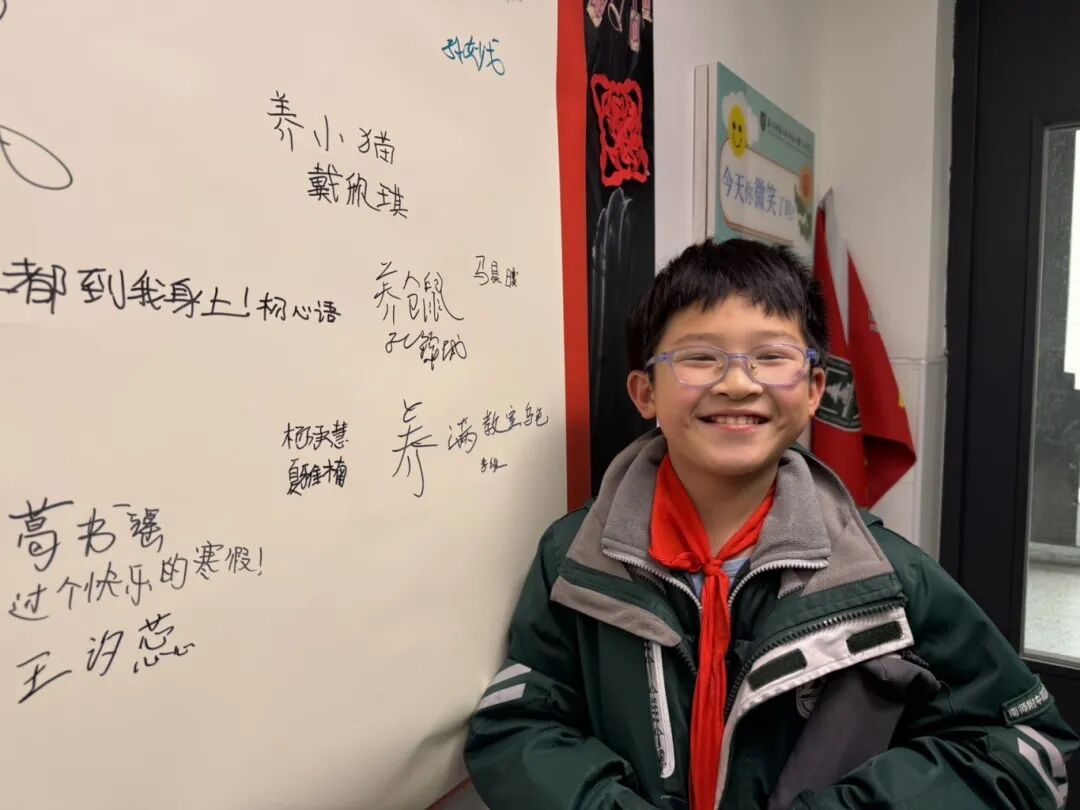 养小猫
戴欣琪
都到我身上！杨心语
养仓鼠
马晨
孔
养满教室乌龟
杨承慧
夏雅楠
葛书瑶
过个快乐的寒假！
王汐蕊
今天你微笑了吗
南师附中